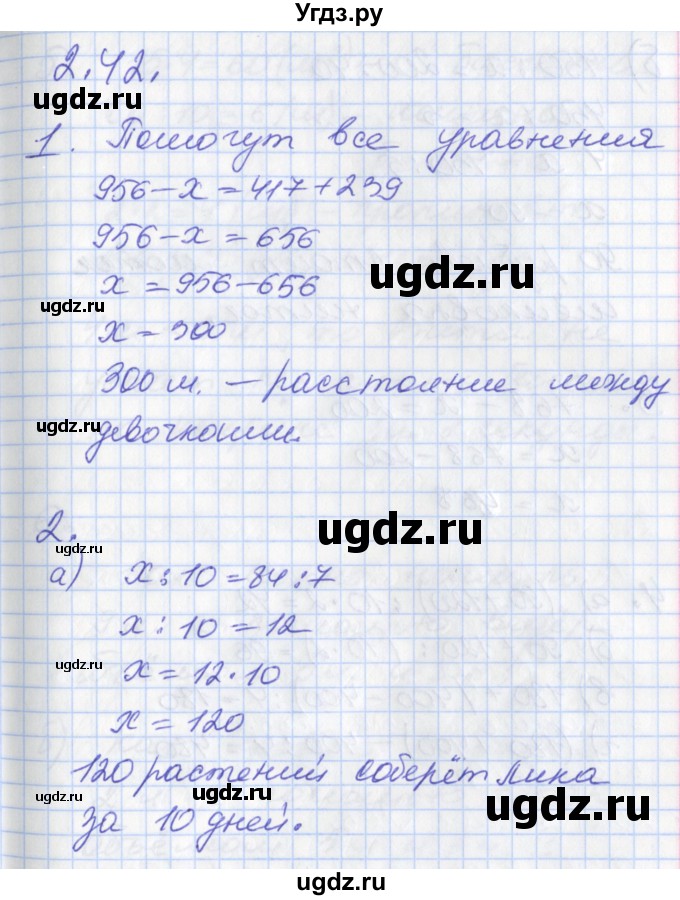 Угдз.ру
2.42.
ugdz.ru
1. Помогут все уравнения
956-x=417+239
956-x=656
ugdz.ru
x=956-656
ugdz.ru
x=300
300 м. — расстояние между
ugdz.ru
девочками.
2.
ugdz.ru
ugdz.ru
а) x:10=84:7
x:10=12
ugdz.ru
x=12·10
x=120
120 растений соберёт Лина
ugdz.ru
ugdz.ru
ugdz.ru
за 10 дней.
ugdz.ru